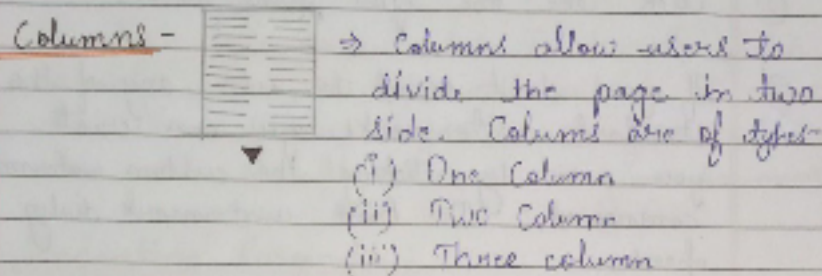 Columns - ⇒ Columns allow users to
divide the page in two
side. Colums are of types-
(i) One Column
(ii) Two Column
(iii) Three column